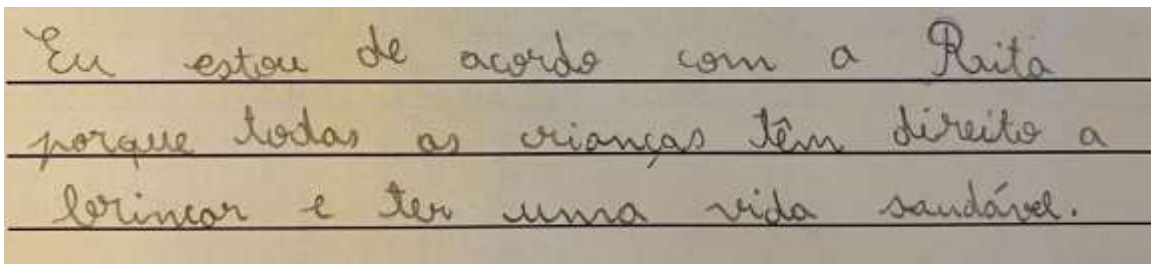 Eu estou de acordo com a Rita
porque todas as crianças têm direito a
brincar e ter uma vida saudável.